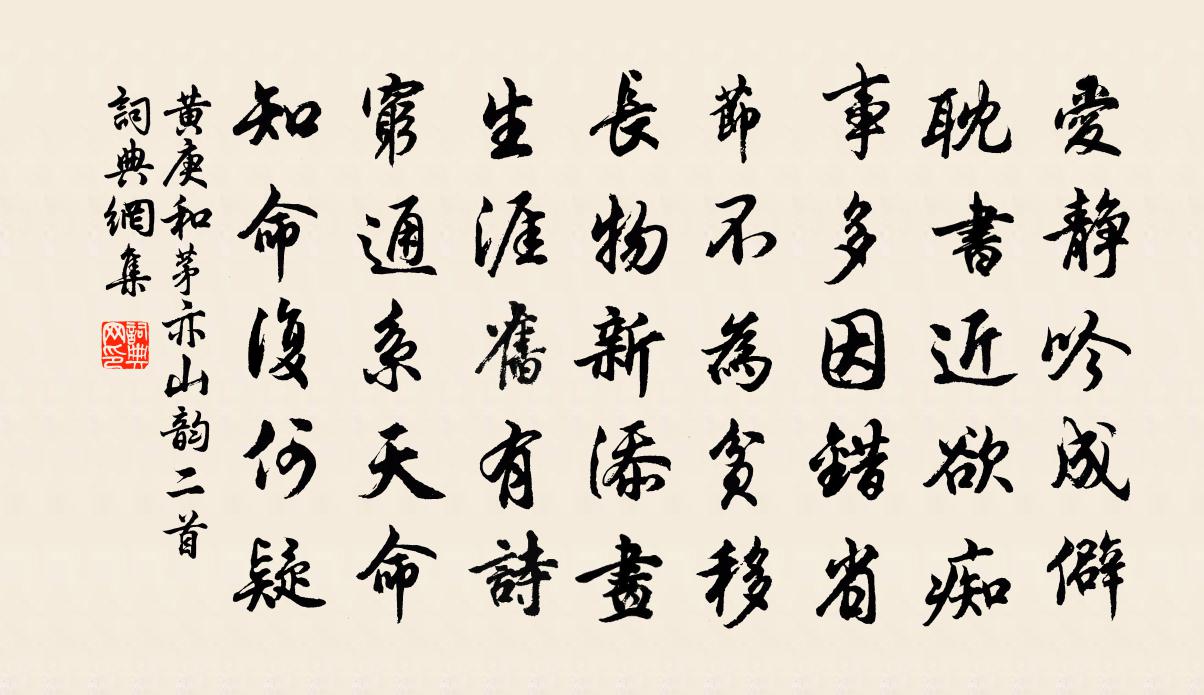 愛静吟成僻
耽書近欲痴
事多因錯省
節不為貧移
長物新添畫
生涯舊有詩
窮通系天命
知命復何疑
黃庚和茅亦山韵二首
詞典網集
詞典网印